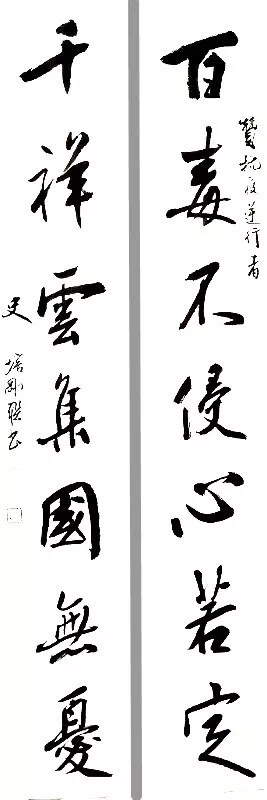 贊抗疫逆行者
百毒不侵心若定
千祥雲集國無憂
史培剛聯